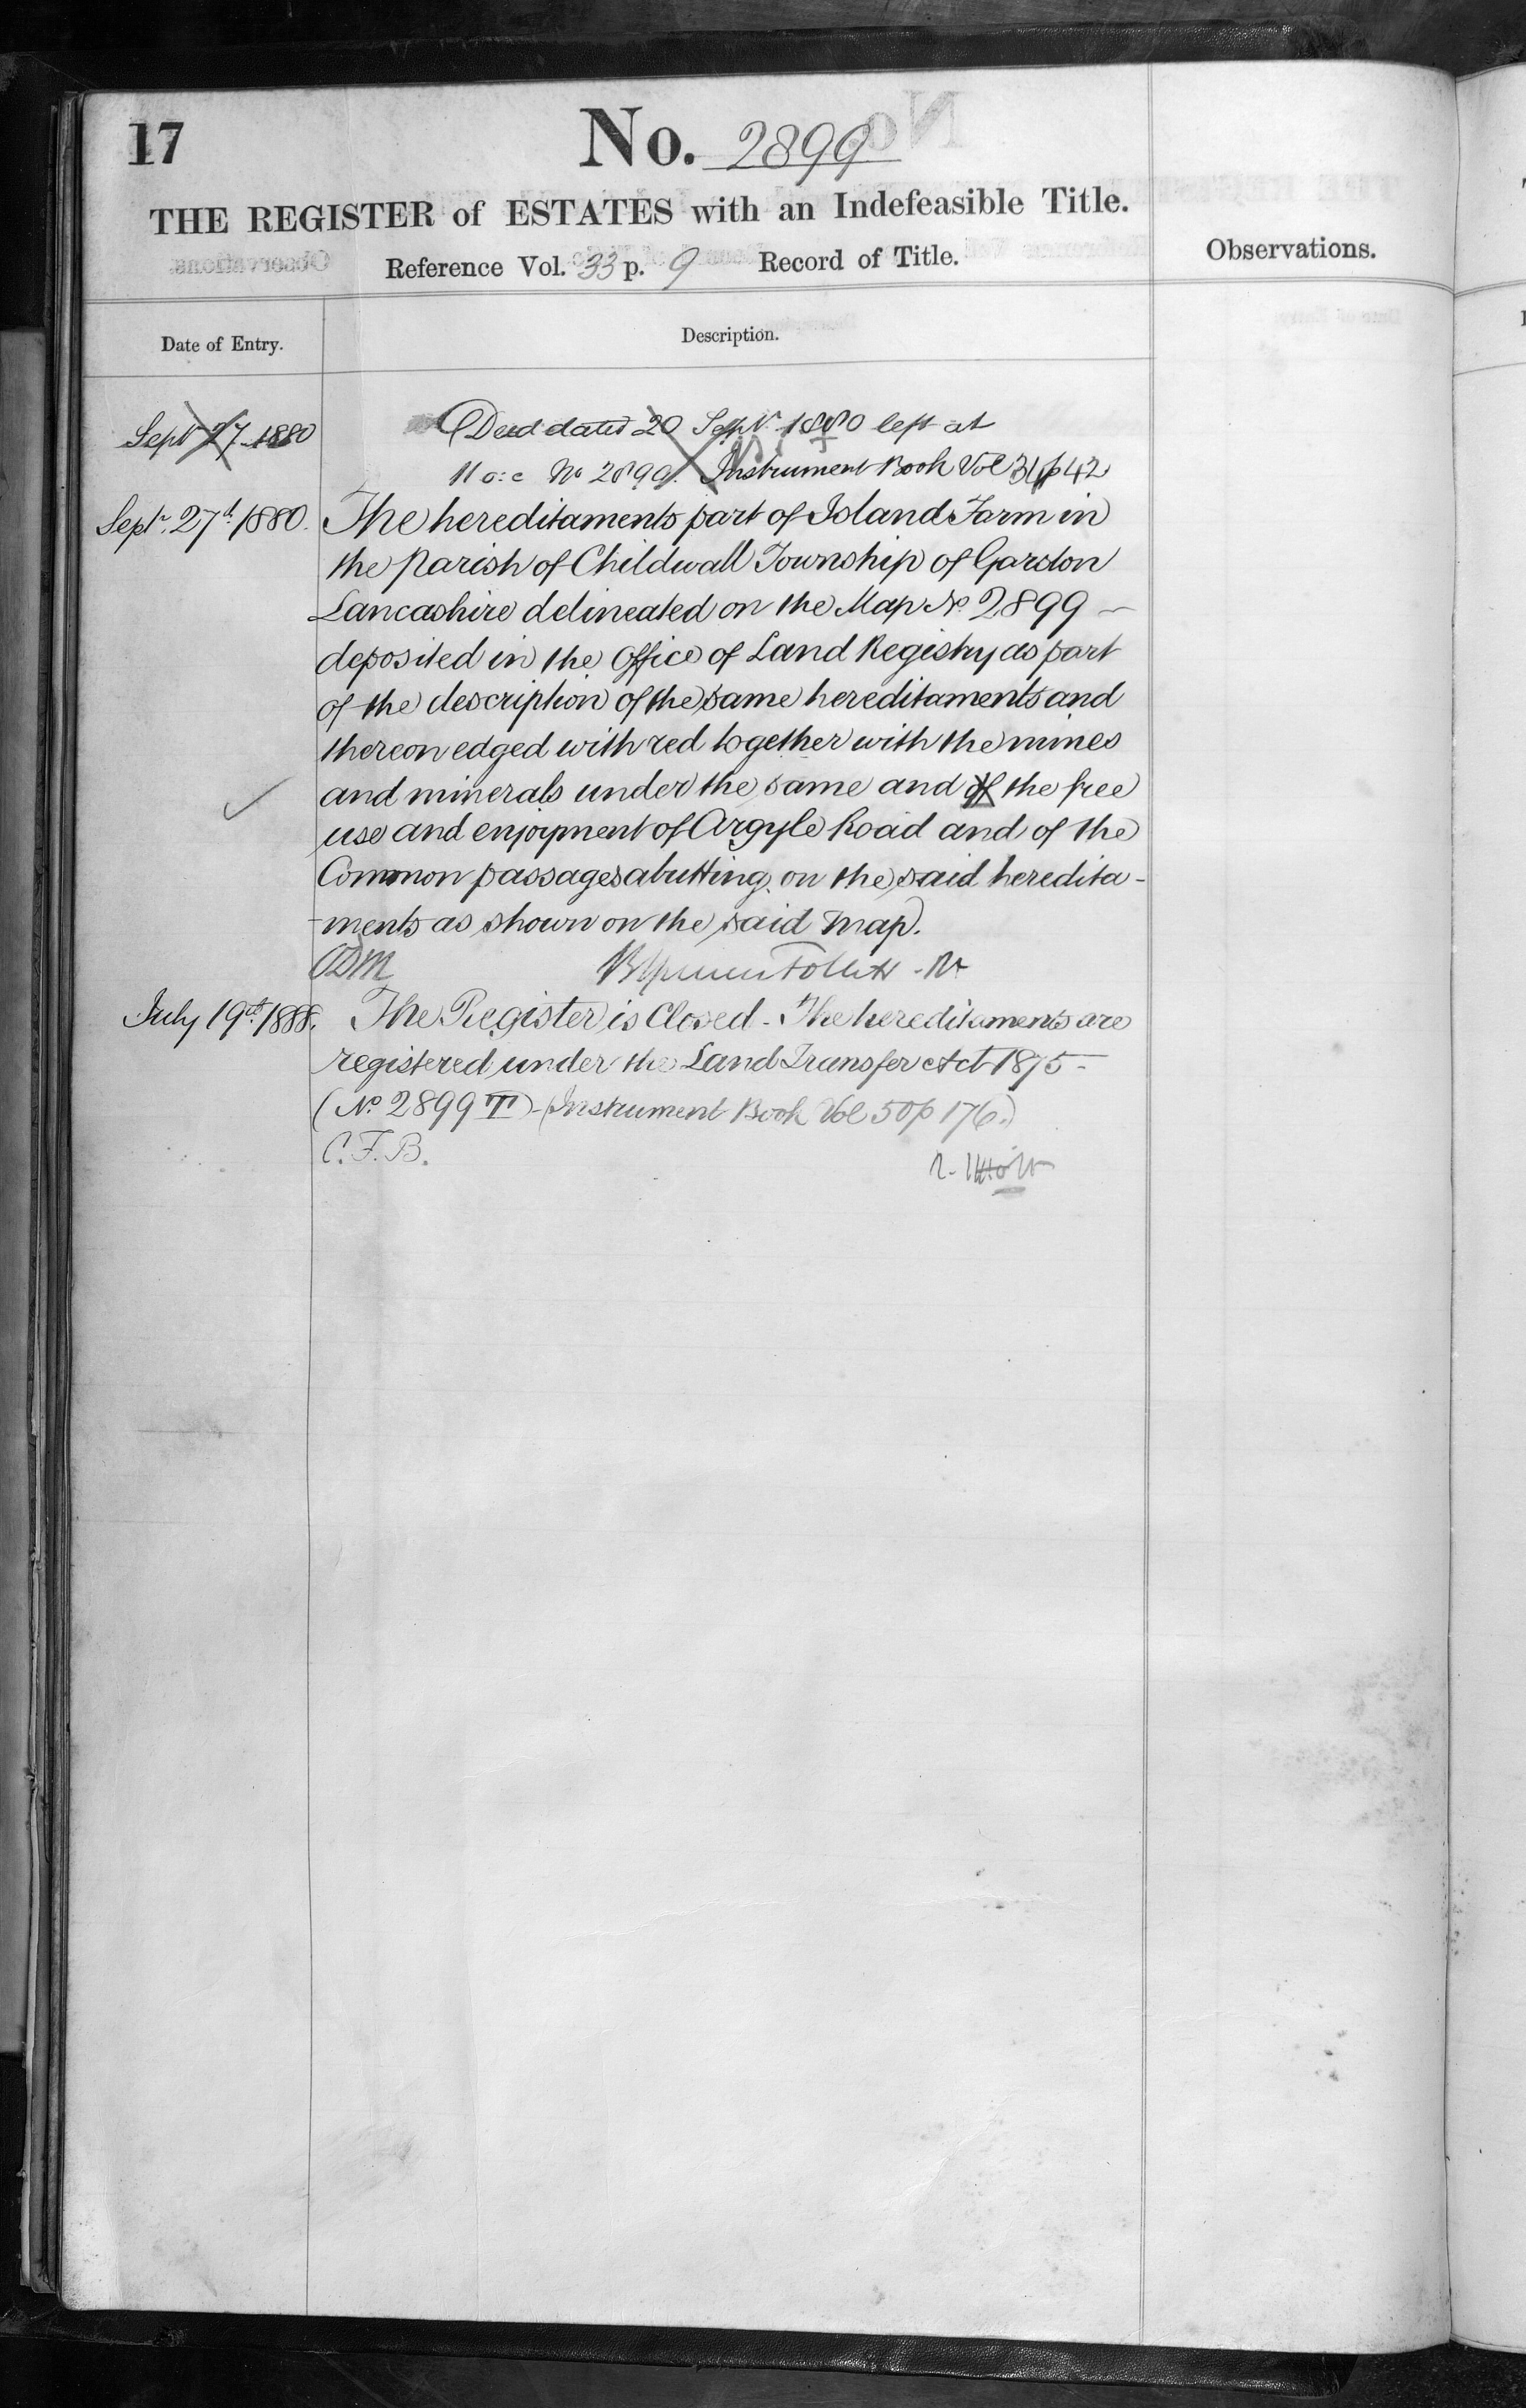 17
No. 2899
THE REGISTER of ESTATES with an Indefeasible Title.
Reference Vol. 33 p. 9 Record of Title.
Observations.
Date of Entry.
Description.
Sept 27 1880
Deed dated 20 Sept. 1880 left at
11 o:c No 2899. Instrument Book Vol 34 p 42
Septr. 27th 1880. The hereditaments part of Island Farm in
the Parish of Childwall Township of Garston
Lancashire delineated on the Map No. 2899 —
deposited in the Office of Land Registry as part
of the description of the same hereditaments and
thereon edged with red together with the mines
and minerals under the same and of the free
use and enjoyment of Argyle Road and of the
Common passages abutting on the said heredita-
-ments as shown on the said Map.
ODM Follett
July 19th 1888. The Register is Closed - The hereditaments are
registered under the Land Transfer Act 1875 -
(No. 2899 T) - (Instrument Book Vol 50 p 176.)
C.F.B.